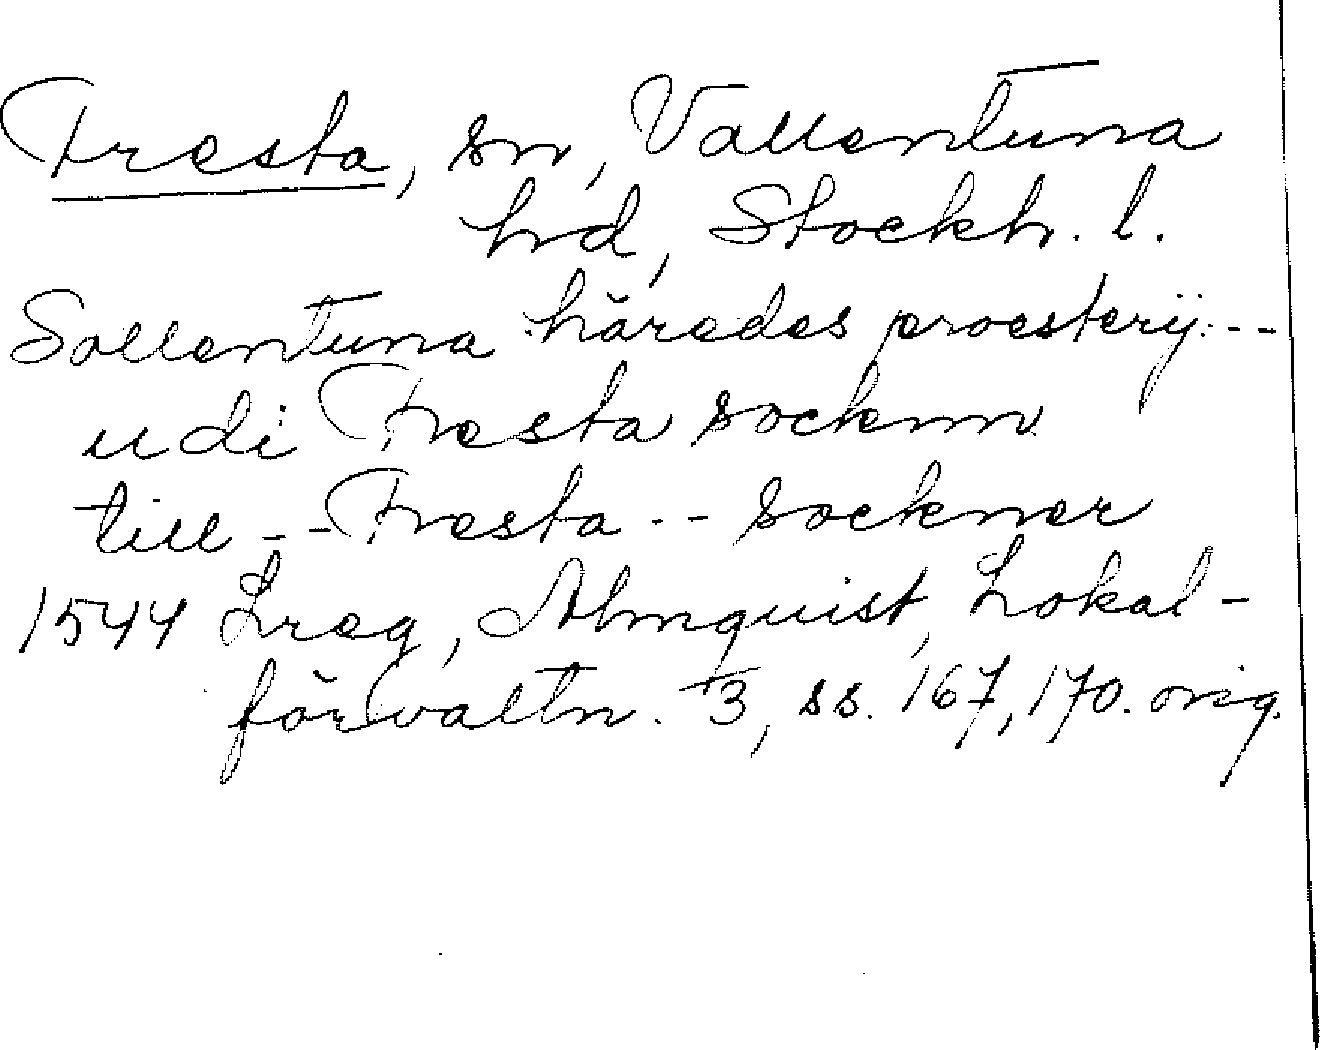 Fresta, sn, Vallentuna
hd, Stockh. l.
Sollentuna häredes proesterij --
udi Fresta socknn
till -- Fresta -- sockner
1544 Lreg, Almquist, Lokal-
förvaltn. 3, ss. 167, 170. orig.